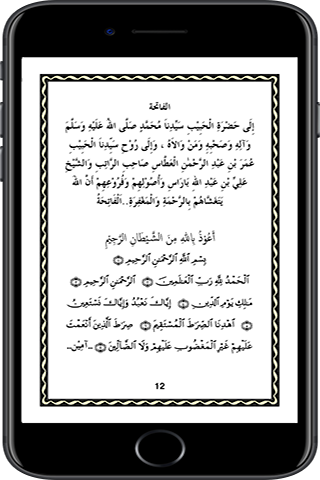 الفاتحة
إِلَى حَضْرَةِ الْحَبِيْبِ سَيِّدِنَا مُحَمَّدٍ صَلَّى اللهُ عَلَيْهِ وَسَلَّمَ
وَآلِهِ وَصَحْبِهِ وَمَنْ وَالَاهُ ، وَإِلَى رُوْحِ سَيِّدِنَا الْحَبِيْبِ
عُمَرَ بْنِ عَبْدِ الرَّحْمٰنِ الْعَطَّاسِ صَاحِبِ الرَّاتِبِ وَالشَّيْخِ
عَلِيِّ بْنِ عَبْدِ اللهِ بَارَاسٍ وَأُصُوْلِهِمْ وَفُرُوْعِهِمْ أَنَّ اللهَ
يَتَغَشَّاهُمْ بِالرَّحْمَةِ وَالْمَغْفِرَةِ..الْفَاتِحَةُ
أَعُوْذُ بِاللهِ مِنَ الشَّيْطَانِ الرَّجِيْمِ
بِسْمِ ٱللَّهِ ٱلرَّحْمَٰنِ ٱلرَّحِيمِ ۝١
ٱلْحَمْدُ لِلَّهِ رَبِّ ٱلْعَٰلَمِينَ ۝٢ ٱلرَّحْمَٰنِ ٱلرَّحِيمِ ۝٣
مَٰلِكِ يَوْمِ ٱلدِّينِ ۝٤ إِيَّاكَ نَعْبُدُ وَإِيَّاكَ نَسْتَعِينُ
۝٥ ٱهْدِنَا ٱلصِّرَٰطَ ٱلْمُسْتَقِيمَ ۝٦ صِرَٰطَ ٱلَّذِينَ أَنْعَمْتَ
عَلَيْهِمْ غَيْرِ ٱلْمَغْضُوبِ عَلَيْهِمْ وَلَا ٱلضَّآلِّينَ ۝٧ -آمِيْنَ-
12